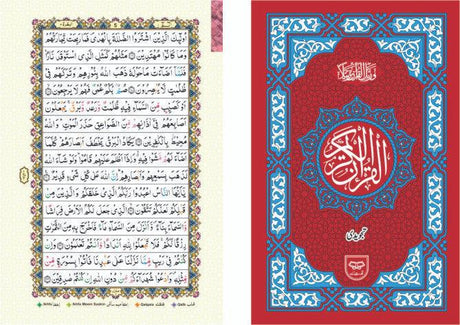 اُولٰٓئِكَ الَّذِيْنَ اشْتَرَوُا الضَّلٰلَةَ بِالْهُدٰى فَمَا رَبِحَتْ تِّجَارَتُهُمْ
وَمَا كَانُوْا مُهْتَدِيْنَ مَثَلُهُمْ كَمَثَلِ الَّذِى اسْتَوْقَدَ نَارًا
فَلَمَّاۤ اَضَآءَتْ مَا حَوْلَهٗ ذَهَبَ اللّٰهُ بِنُوْرِهِمْ وَتَرَكَهُمْ فِىْ
ظُلُمٰتٍ لَّا يُبْصِرُوْنَ صُمٌّۢ بُكْمٌ عُمْىٌ فَهُمْ لَا يَرْجِعُوْنَ
اَوْ كَصَيِّبٍ مِّنَ السَّمَآءِ فِيْهِ ظُلُمٰتٌ وَّرَعْدٌ وَّبَرْقٌ يَجْعَلُوْنَ
اَصَابِعَهُمْ فِىْۤ اٰذَانِهِمْ مِّنَ الصَّوَاعِقِ حَذَرَ الْمَوْتِ وَاللّٰهُ
مُحِيْطٌۢ بِالْكٰفِرِيْنَ يَكَادُ الْبَرْقُ يَخْطَفُ اَبْصَارَهُمْ كُلَّمَاۤ
اَضَآءَ لَهُمْ مَّشَوْا فِيْهِ وَاِذَاۤ اَظْلَمَ عَلَيْهِمْ قَامُوْا وَلَوْ شَآءَ اللّٰهُ
لَذَهَبَ بِسَمْعِهِمْ وَاَبْصَارِهِمْ اِنَّ اللّٰهَ عَلٰى كُلِّ شَىْءٍ قَدِيْرٌ
يٰۤاَيُّهَا النَّاسُ اعْبُدُوْا رَبَّكُمُ الَّذِىْ خَلَقَكُمْ وَالَّذِيْنَ مِنْ
قَبْلِكُمْ لَعَلَّكُمْ تَتَّقُوْنَ الَّذِىْ جَعَلَ لَكُمُ الْاَرْضَ فِرَاشًا
وَّالسَّمَآءَ بِنَآءً وَّاَنْزَلَ مِنَ السَّمَآءِ مَآءً فَاَخْرَجَ بِهٖ مِنَ الثَّمَرٰتِ
رِزْقًا لَّكُمْ فَلَا تَجْعَلُوْا لِلّٰهِ اَنْدَادًا وَّاَنْتُمْ تَعْلَمُوْنَ وَاِنْ
كُنْتُمْ فِىْ رَيْبٍ مِّمَّا نَزَّلْنَا عَلٰى عَبْدِنَا فَاْتُوْا بِسُوْرَةٍ مِّنْ
مِّثْلِهٖ وَادْعُوْا شُهَدَآءَكُمْ مِّنْ دُوْنِ اللّٰهِ اِنْ كُنْتُمْ صٰدِقِيْنَ
القرآن الكريم
تجویدی